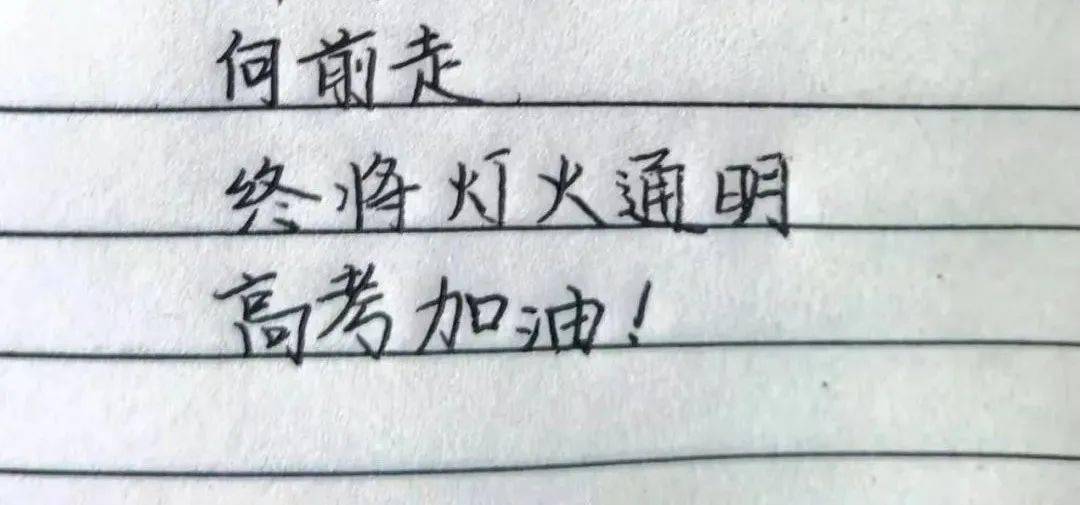 向前走
终将灯火通明
高考加油！